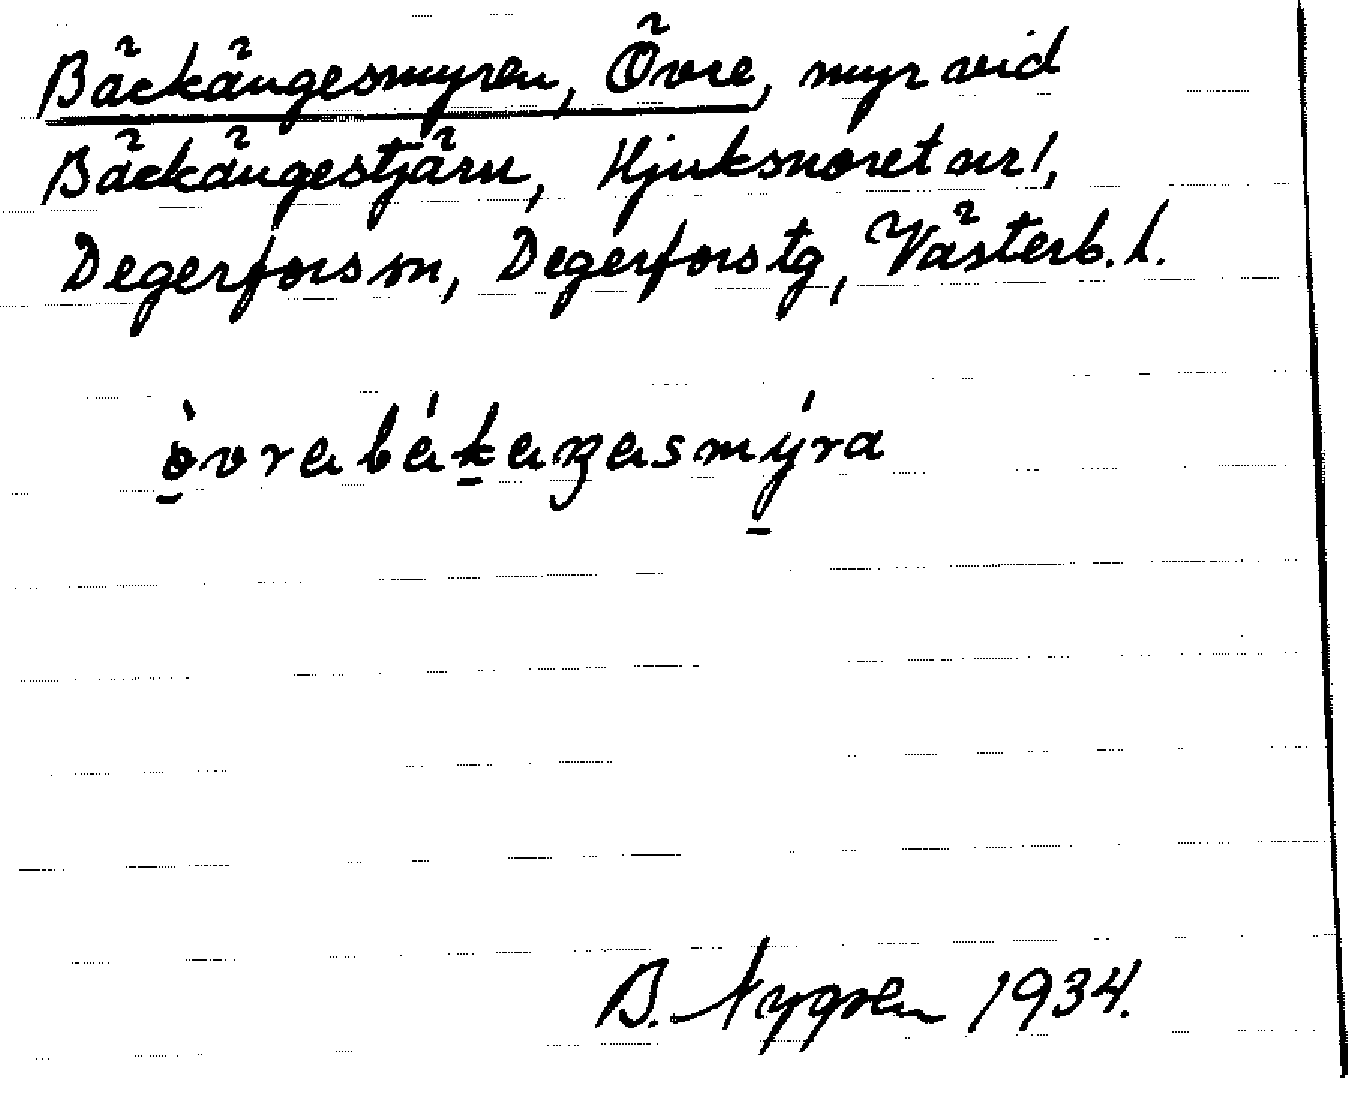 Bäckängesmyren, Övre, myr vid
Bäckängestjärn, Hjuksnoret nr 1,
Degerfors sn, Degerfors tg, Västerb. l.
òvrabákaŋasmýra
B. Nygren 1934.